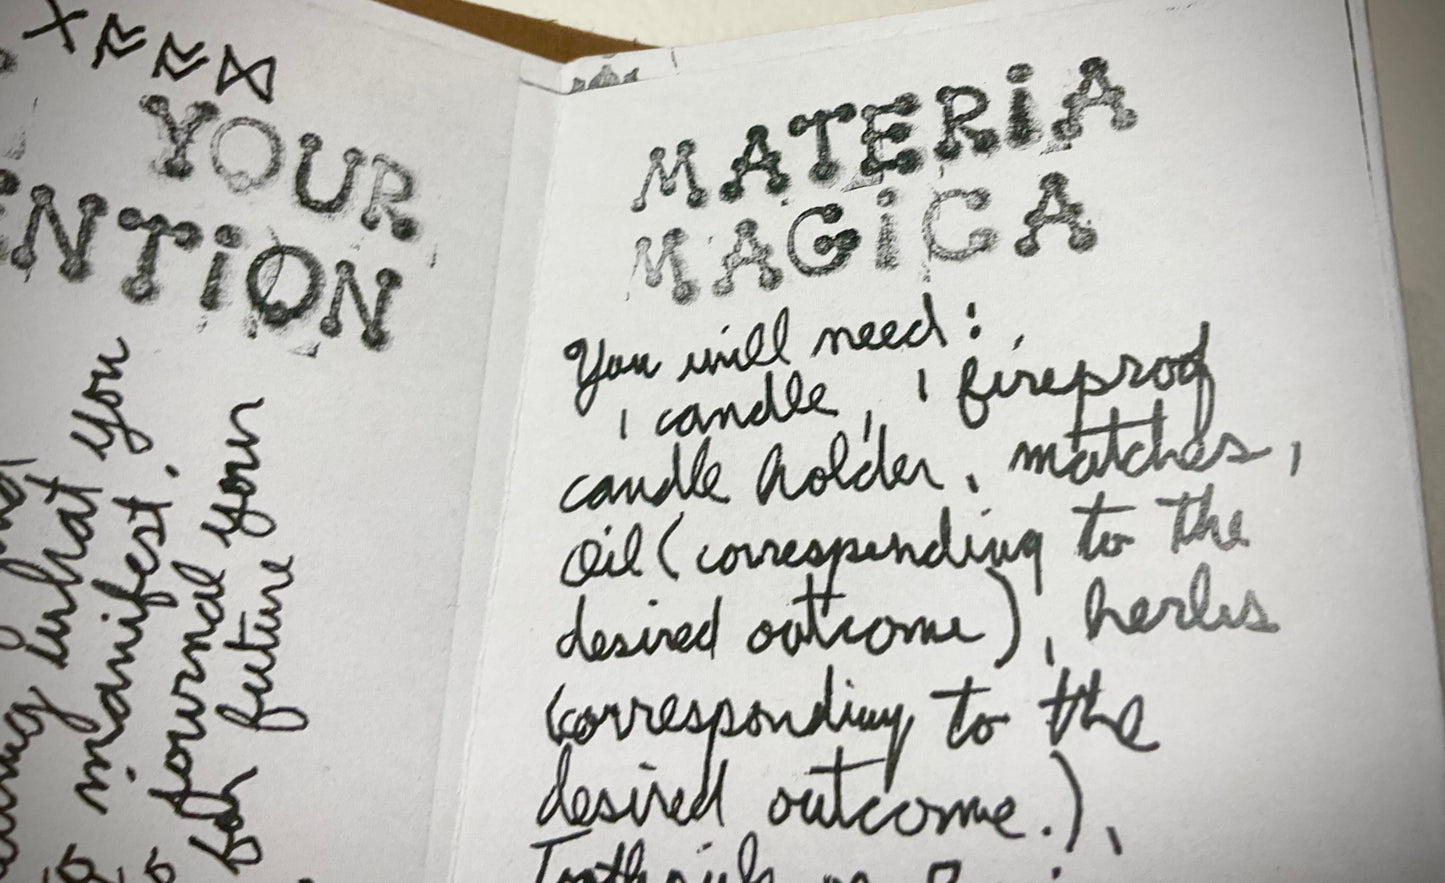 YOUR
NTiON
what you
manifest.
journal your
for future
MATERiA
MAGiCA
You will need:
1 candle, 1 fireproof
candle holder, matches,
oil (corresponding to the
desired outcome), herbs
(corresponding to the
desired outcome.),